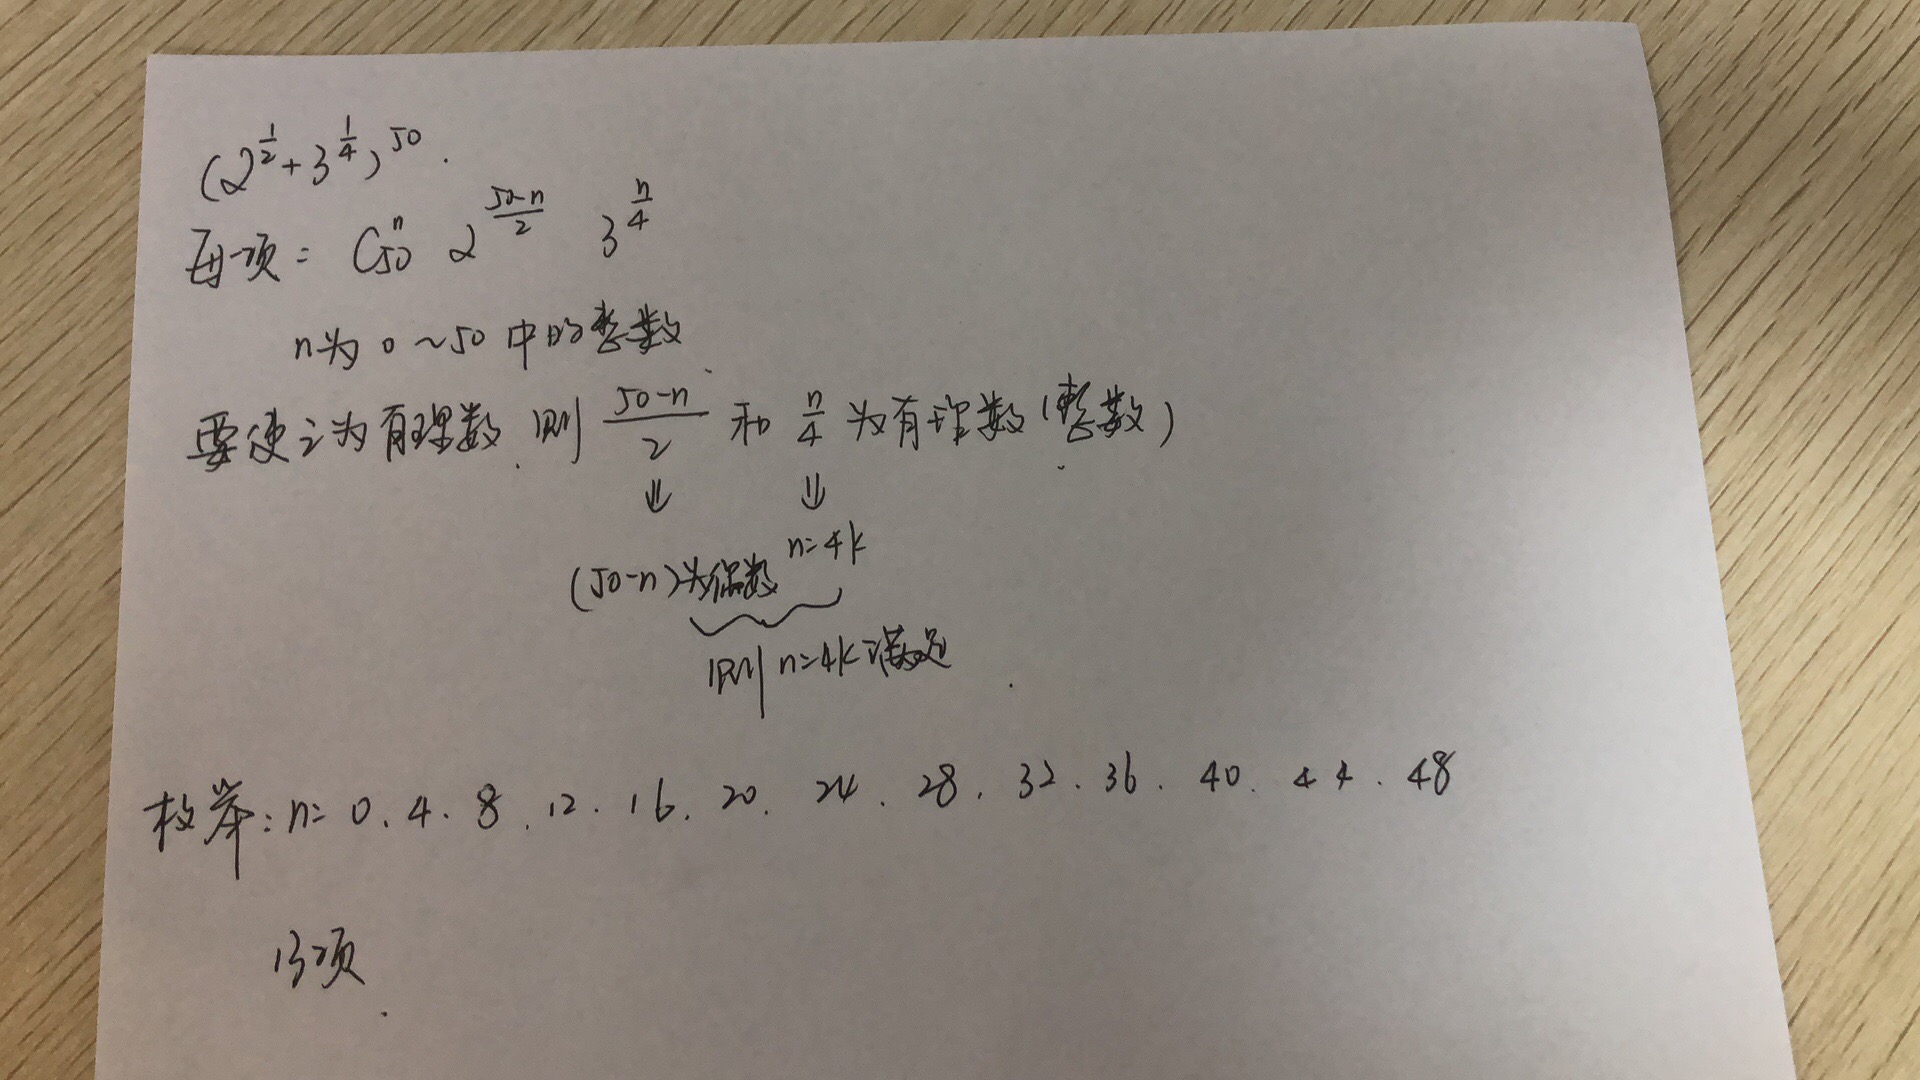 (2^{\frac{1}{2}}+3^{\frac{1}{4}})^{50}.
每一项: C_{50}^{n} 2^{\frac{50-n}{2}} 3^{\frac{n}{4}}
n为0~50中的整数.
要使之为有理数.则\frac{50-n}{2}和\frac{n}{4}为有理数(整数).
⇓ ⇓
(50-n)为偶数 n=4k
则n=4k满足.
枚举:n=0.4.8.12.16.20.24.28.32.36.40.44.48
13项.